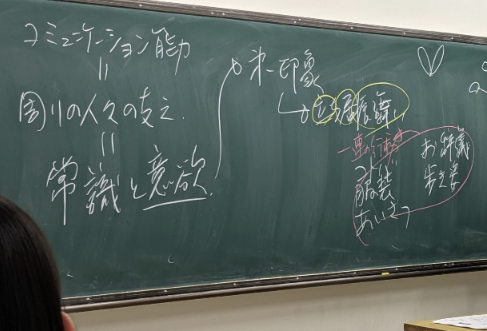 コミュニケーション能力
=
周りの人々の支え.
=
常識と意欲.
第一印象
立ち居振る舞い
服装
あいさつ
お辞儀
歩き姿